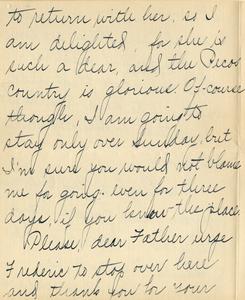 to return with her, so I
am delighted, for she is
such a dear, and the Pecos
country is glorious. Of course
though, I am going to
stay only over Sunday, but
I'm sure you would not blame
me for going even for three
days, if you knew the place.
Please, dear Father urge
Frederic to stop over here
and thank you for your